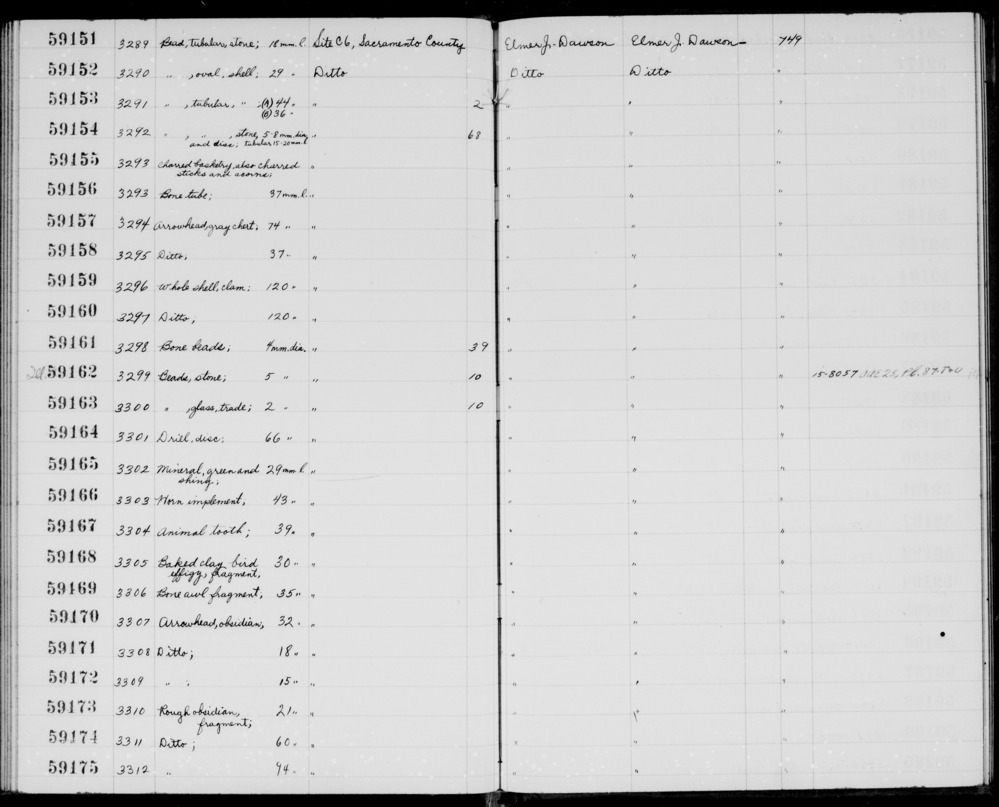 59151 3289 Bead, tubular, stone; 18 mm. l. Site C6, Sacramento County Elmer J. Dawson Elmer J. Dawson 749
59152 3290 " , oval, shell; 29 " Ditto Ditto Ditto "
59153 3291 " , tubular, " (A) 44 " " 2 " " "
(B) 36 "
59154 3292 " , " , stone, 5-8 mm. dia. " 68 " " "
and disc; tubular 15-20 mm. l
59155 3293 Charred basketry, also charred " " " "
sticks and acorns;
59156 3293 Bone tube; 37 mm. l. " " " "
59157 3294 Arrowhead, gray chert; 74 " " " " "
59158 3295 Ditto, 37 " " " " "
59159 3296 Whole shell, clam; 120 " " " " "
59160 3297 Ditto, 120 " " " " "
59161 3298 Bone beads; 4 mm. dia. " 39 " " "
59162 3299 Beads, stone; 5 " " 10 " " " 15-8057
59163 3300 " , glass, trade; 2 " " 10 " " "
59164 3301 Drill, disc; 66 " " " " "
59165 3302 Mineral, green and 29 mm. l " " " "
shiny;
59166 3303 Horn implement, 43 " " " " "
59167 3304 Animal tooth; 39 " " " " "
59168 3305 Baked clay bird 30 " " " " "
effigy, fragment,
59169 3306 Bone awl fragment, 35 " " " " "
59170 3307 Arrowhead, obsidian, 32 " " " " "
59171 3308 Ditto; 18 " " " " "
59172 3309 " ; 15 " " " " "
59173 3310 Rough obsidian, 21 " " " " "
fragment;
59174 3311 Ditto; 60 " " " " "
59175 3312 " 94 " " " " "